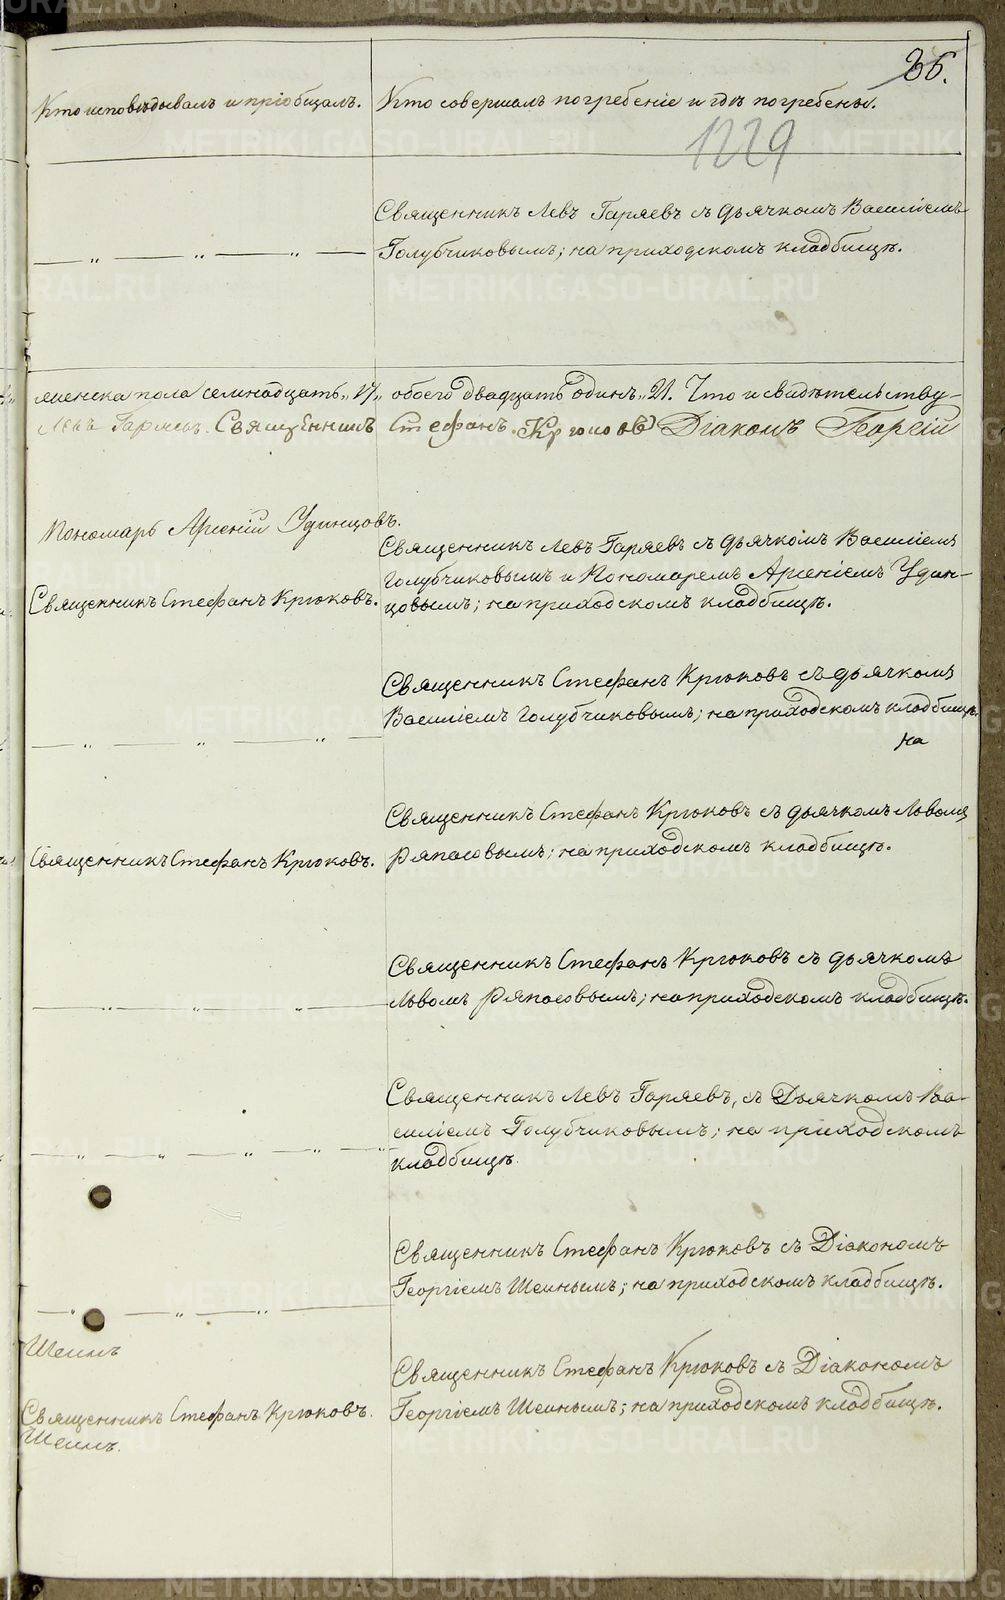 36.
Кто исповѣдывалъ и пріобщалъ. Кто совершалъ погребеніе и гдѣ погребены.
1229
Священникъ Левъ Гаряевъ съ дьячкомъ Василіемъ
Голубчиковымъ; на приходскомъ кладбищѣ.
женска пола семнадцать „17„ обоего двадцать одинъ „21. Что и свидѣтельству-
Левъ Гаряевъ. Священникъ Стефанъ Крюковъ Діаконъ Георгій
Пономарь Арсеній Удинцовъ.
Священникъ Левъ Гаряевъ съ дьячкомъ Василіемъ
Голубчиковымъ и Пономаремъ Арсеніемъ Удин-
Священникъ Стефанъ Крюковъ. цовымъ; на приходскомъ кладбищѣ.
Священникъ Стефанъ Крюковъ съ дьячкомъ
Василіемъ Голубчиковымъ; на приходскомъ кладбищѣ.
на
Священникъ Стефанъ Крюковъ съ дьячкомъ Львомъ
Священникъ Стефанъ Крюковъ. Ряпасовымъ; на приходскомъ кладбищѣ.
Священникъ Стефанъ Крюковъ съ дьячкомъ
Львомъ Ряпасовымъ; на приходскомъ кладбищѣ.
Священникъ Левъ Гаряевъ, съ Дьячкомъ Ва-
силіемъ Голубчиковымъ; на приходскомъ
кладбищѣ.
Священникъ Стефанъ Крюковъ съ Діакономъ
Георгіемъ Шеинымъ; на приходскомъ кладбищѣ.
Шеинъ
Священникъ Стефанъ Крюковъ съ Діакономъ
Священникъ Стефанъ Крюковъ. Георгіемъ Шеинымъ; на приходскомъ кладбищѣ.
Шеинъ.
METRIKI.GASO-URAL.RU